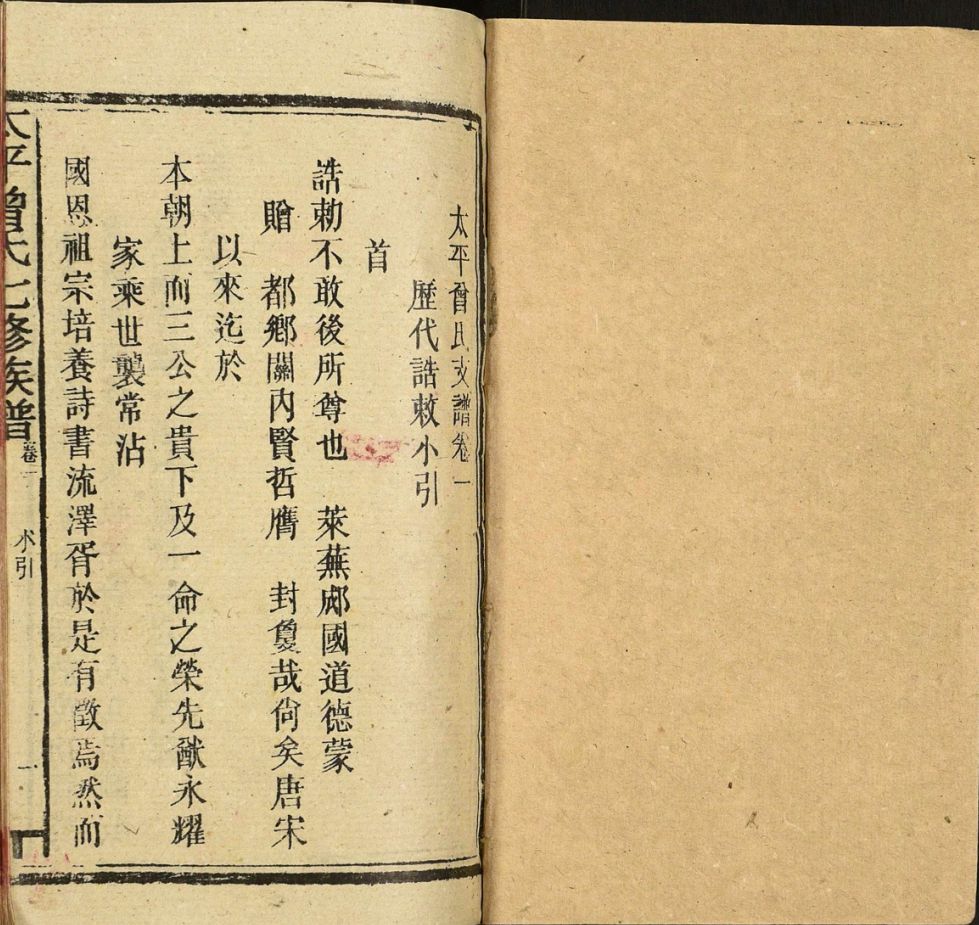 太平曾氏支譜卷一
歷代誥敕小引
首
誥勅不敢後所尊也　萊蕪郕國道德蒙
贈　都鄉關內賢哲膺　封敻哉尙矣唐宋
以來迄於
本朝上而三公之貴下及一命之榮先猷永耀
家乘世襲常沾
國恩祖宗培養詩書流澤胥於是有徵焉然而
太平曾氏七修族譜
卷一
小引
一